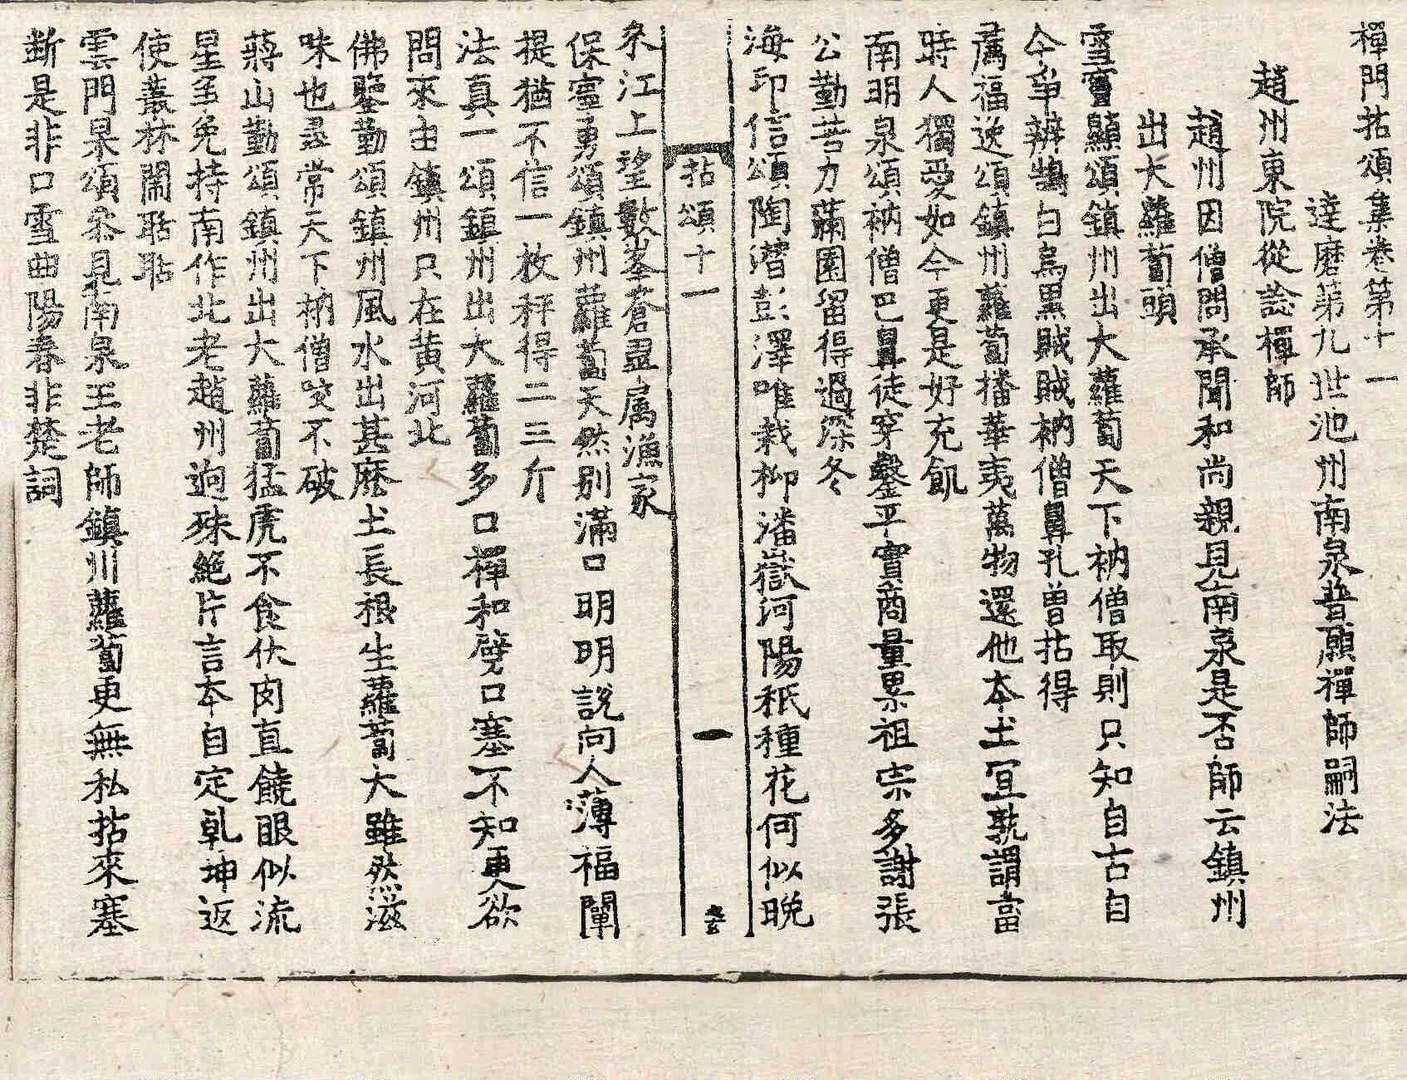 禪門拈頌集卷第十一
達磨第九世池州南泉普願禪師嗣法
趙州東院從諗禪師
趙州因僧問承聞和尚親見南泉是否師云鎮州
出大蘿蔔頭
雪竇顯頌鎮州出大蘿蔔天下衲僧取則只知自古自
今爭辨鵠白烏黑賊賊衲僧鼻孔曾拈得
薦福逸頌鎮州蘿蔔播華夷萬物還他本土冝孰謂當
時人獨愛如今更是好充飢
南明泉頌衲僧巴鼻徒穿鑿平實商量累祖宗多謝張
公勤苦力滿園留得過深冬
海印信頌陶潛彭澤唯栽柳潘嶽河陽秖種花何似晚
拈頌十一
一
来江上望數峯蒼翠属漁家
保寧勇頌鎮州蘿蔔天然別滿口明明說向人薄福闡
提猶不信一枚秤得二三斤
法真一頌鎮州出大蘿蔔多口禪和劈口塞不知更欲
問來由鎮州只在黃河北
佛鑒勤頌鎮州風水出甚麽土長根生蘿蔔大雖然滋
味也尋常天下衲僧咬不破
蔣山勤頌鎮州出大蘿蔔猛虎不食伏肉直饒眼似流
星爭免持南作北老趙州逈殊絶片言本自定乹坤返
使叢林閙聒聒
雲門杲頌叅見南泉王老師鎮州蘿蔔更無私拈來塞
斷是非口雪曲陽春非楚詞